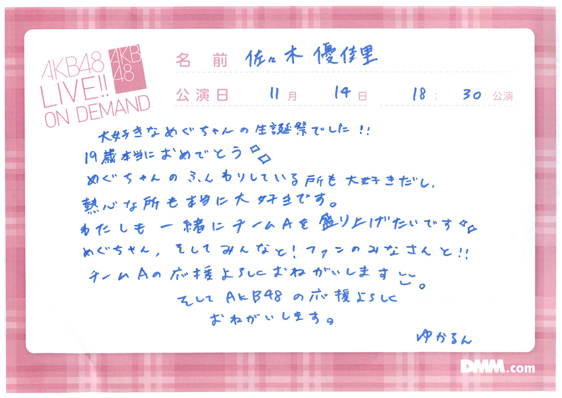 AKB48
LIVE!!
ON DEMAND
AKB
48
名前 佐々木優佳里
公演日 11月 14日 18:30公演
大好きなめぐちゃんの生誕祭でした!!
19歳本当におめでとう
めぐちゃんのふんわりしている所も大好きだし、
熱心な所も本当に大好きです。
わたしも一緒にチームAを盛り上げたいです
めぐちゃん、そしてみんなと!ファンのみなさんと!!
チームAの応援よろしくおねがいします。
そしてAKB48の応援よろしく
おねがいします。
ゆかるん
DMM.com